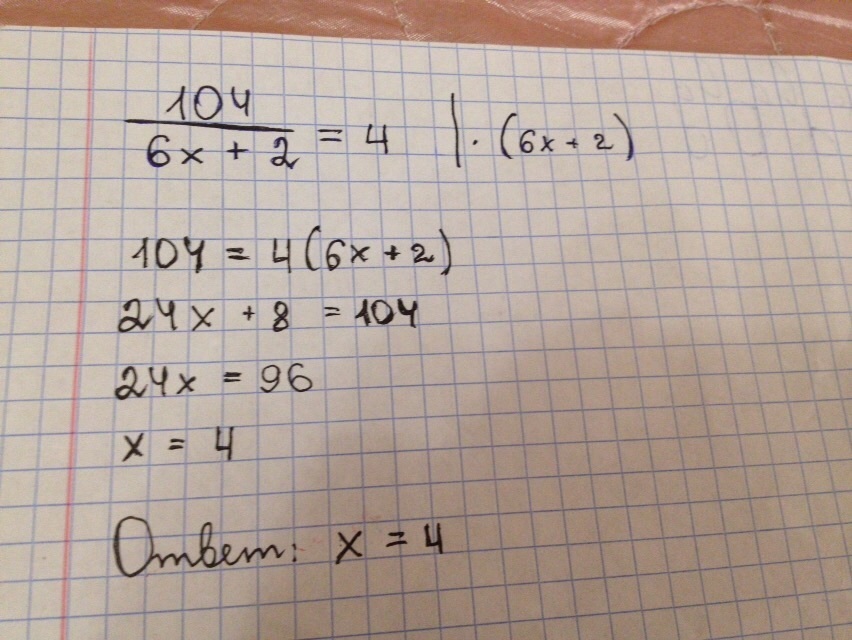 104/(6x + 2) = 4 | · (6x + 2)
104 = 4(6x + 2)
24x + 8 = 104
24x = 96
x = 4
Ответ: x = 4